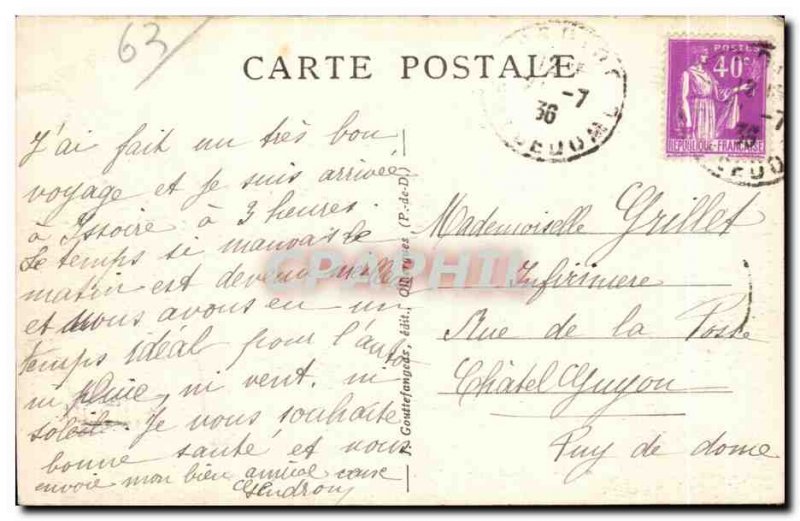 63
CARTE POSTALE
36
-7
DEDOME
POSTES
40c
REPUBLIQUE-FRANÇAISE
-7
36
J'ai fait un très bon
voyage et je suis arrivée
à Issoire à 3 heures.
Le temps si mauvais le
matin est devenu meilleur
et nous avons eu un
temps idéal pour l'auto
ni pluie, ni vent, ni
soleil. Je vous souhaite
bonne santé et vous
envoie mon bien amical
Gendron
P. Gouttefangeas, édit., Olliergues (P.-de-D.)
CPAPHIL
Mademoiselle Grillet
Infirmiere
Rue de la Poste
Châtel Guyon
Puy de dome